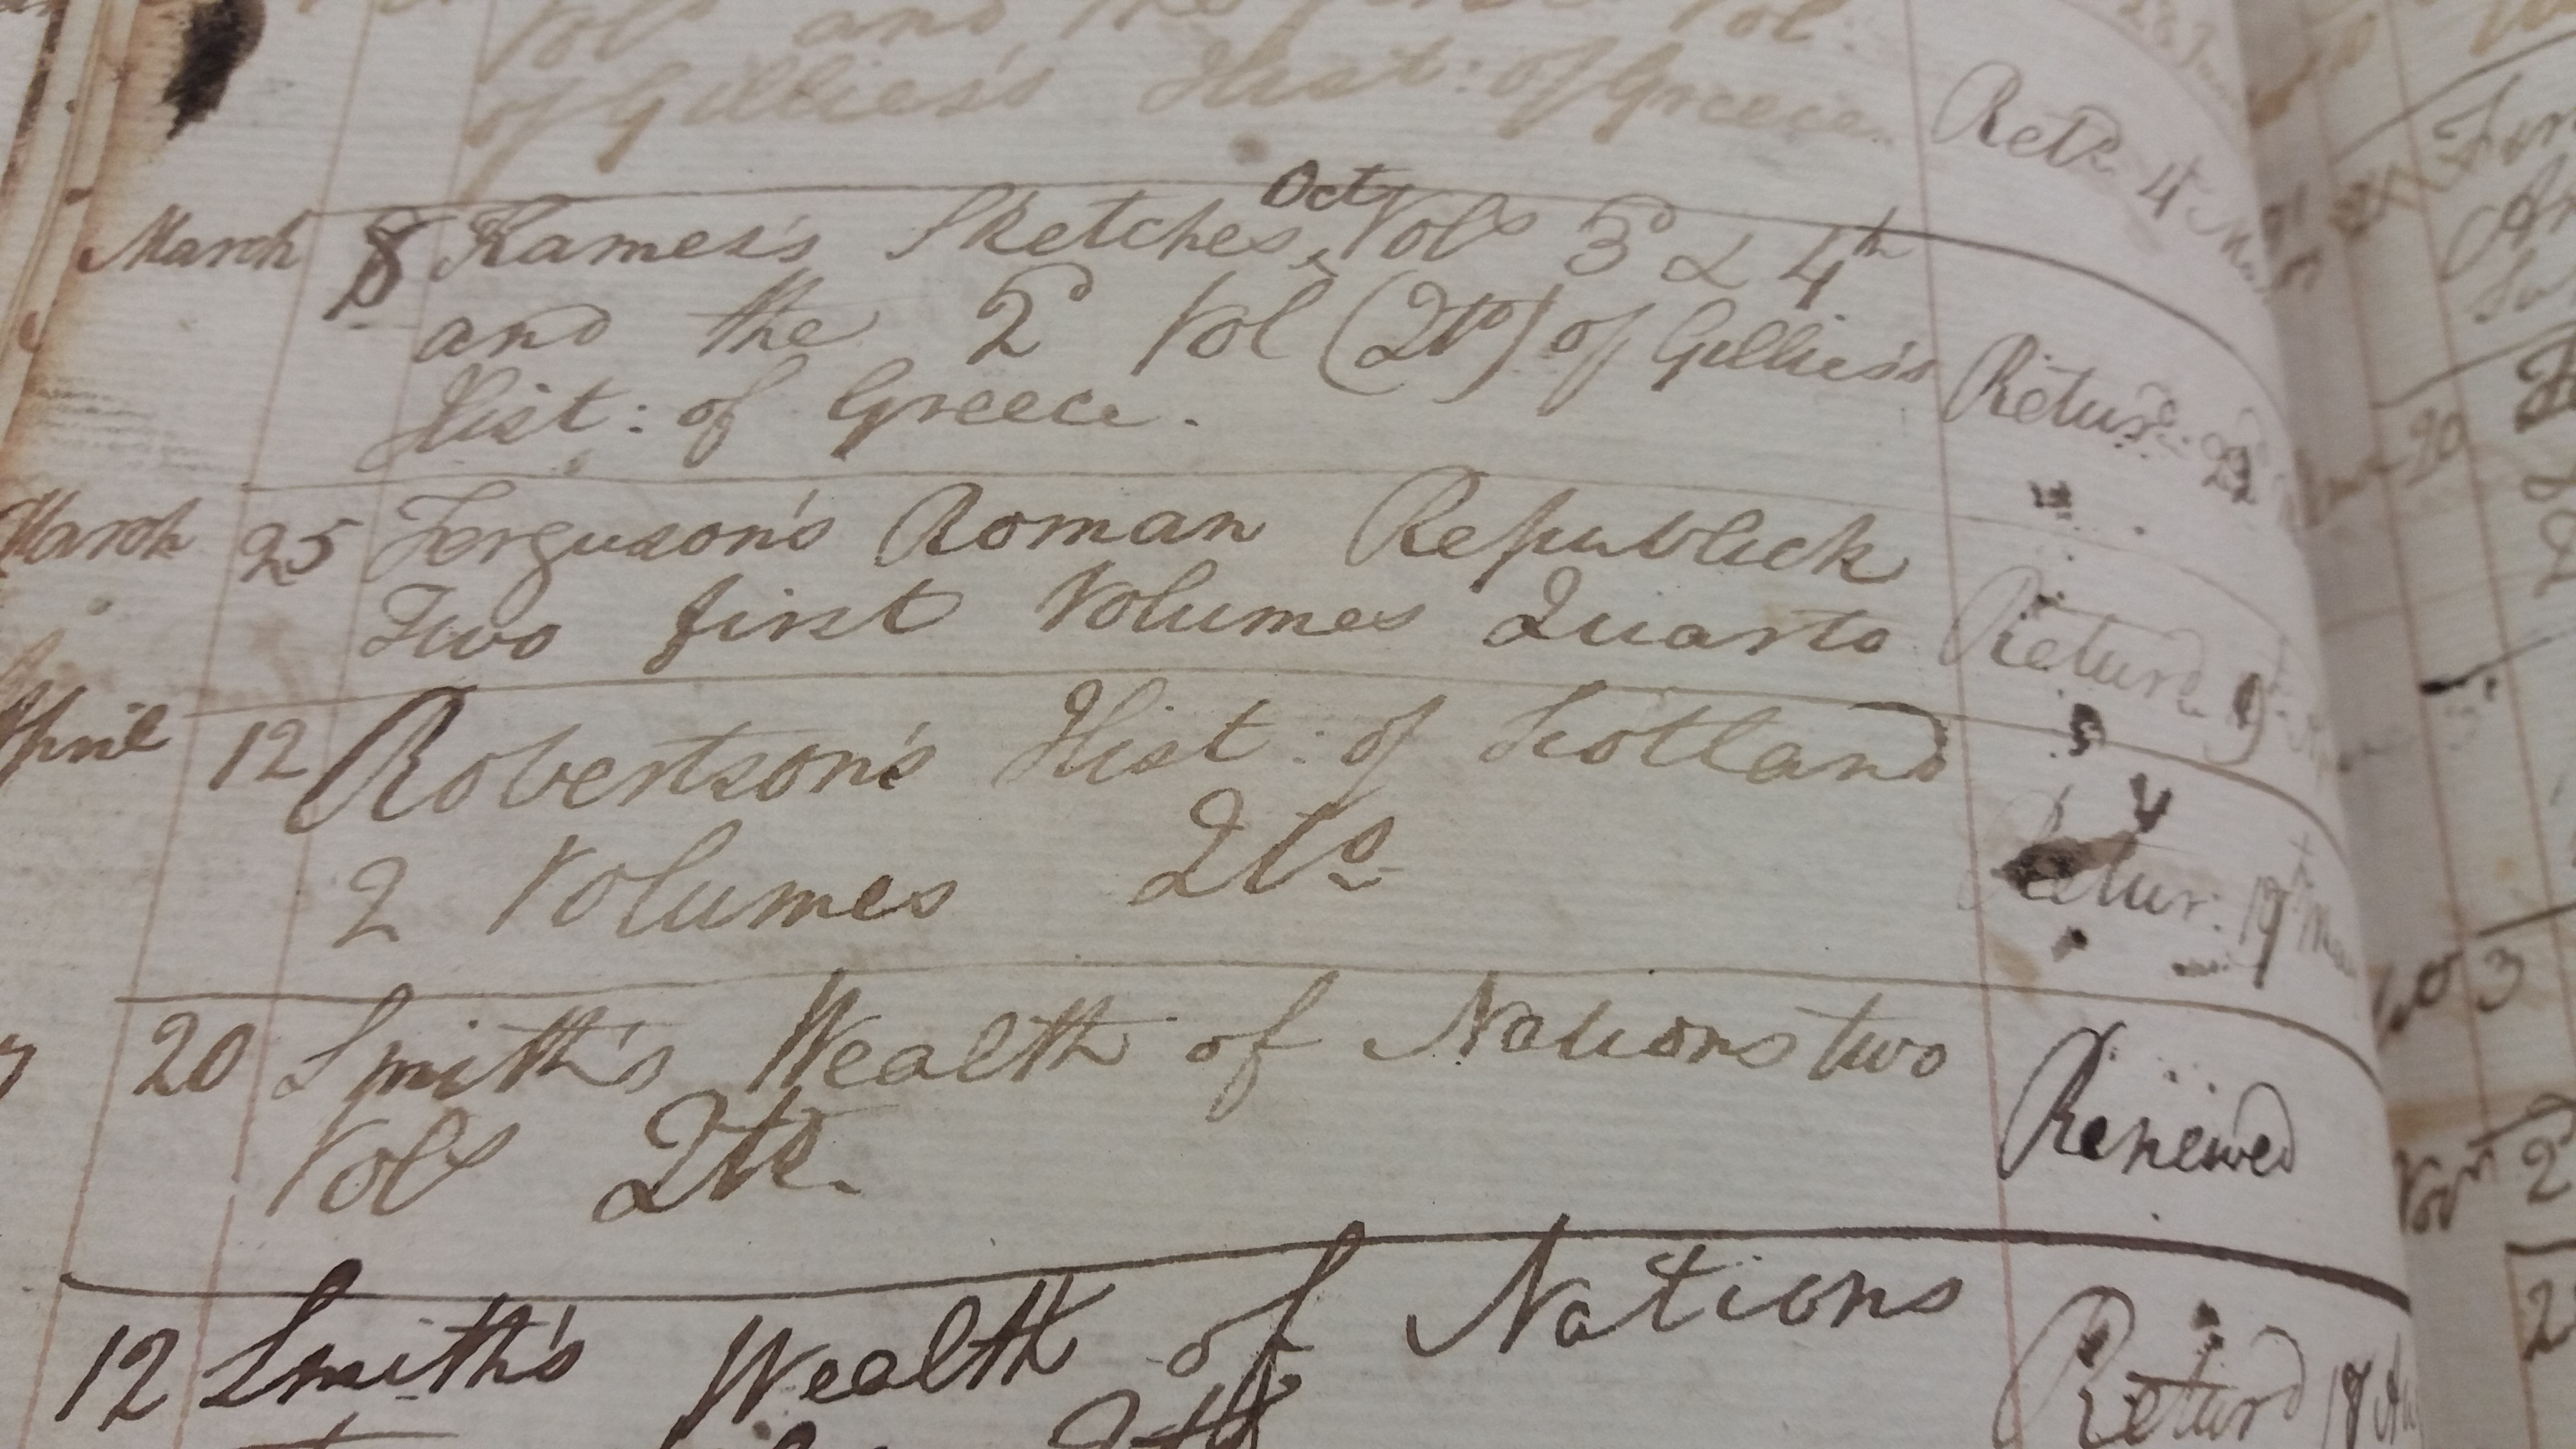 Vols and the first Vol:
of Gillies's Hist: of Greece
Retd 4
March 8 Kames's Sketches, Oct Vols 3d & 4th
and the 2d Vol (2to) of Gillies's
Hist: of Greece.
Returd. 22
March 25 Ferguson's Roman Republick
Two first Volumes Quarto
Returd. 9
April 12 Robertson's Hist: of Scotland
2 Volumes 2to
Retur: 19 May
20 Smith's Wealth of Nations two
Vols 2to.
Renewed
12 Smith's Wealth of Nations
Returd 18
20
3
2
2